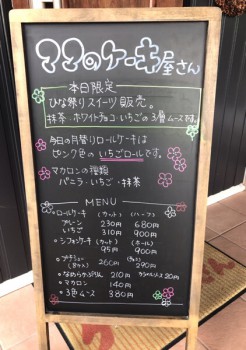 ママのケーキ屋さん
本日限定
ひな祭りスイーツ販売。
抹茶・ホワイトチョコ・いちごの3層ムースです。
今日の月替りロールケーキは
ピンク色のいちごロールです。
マカロンの種類
バニラ・いちご・抹茶
MENU
ロールケーキ (カット) (ハーフ)
プレーン 230円 680円
いちご 310円 900円
シフォンケーキ (カット) (ホール)
95円 900円
プチシュー
(8ヶ入) 260円 290円
なめらかぷりん 210円 20円
マカロン 140円
3色ムース 380円